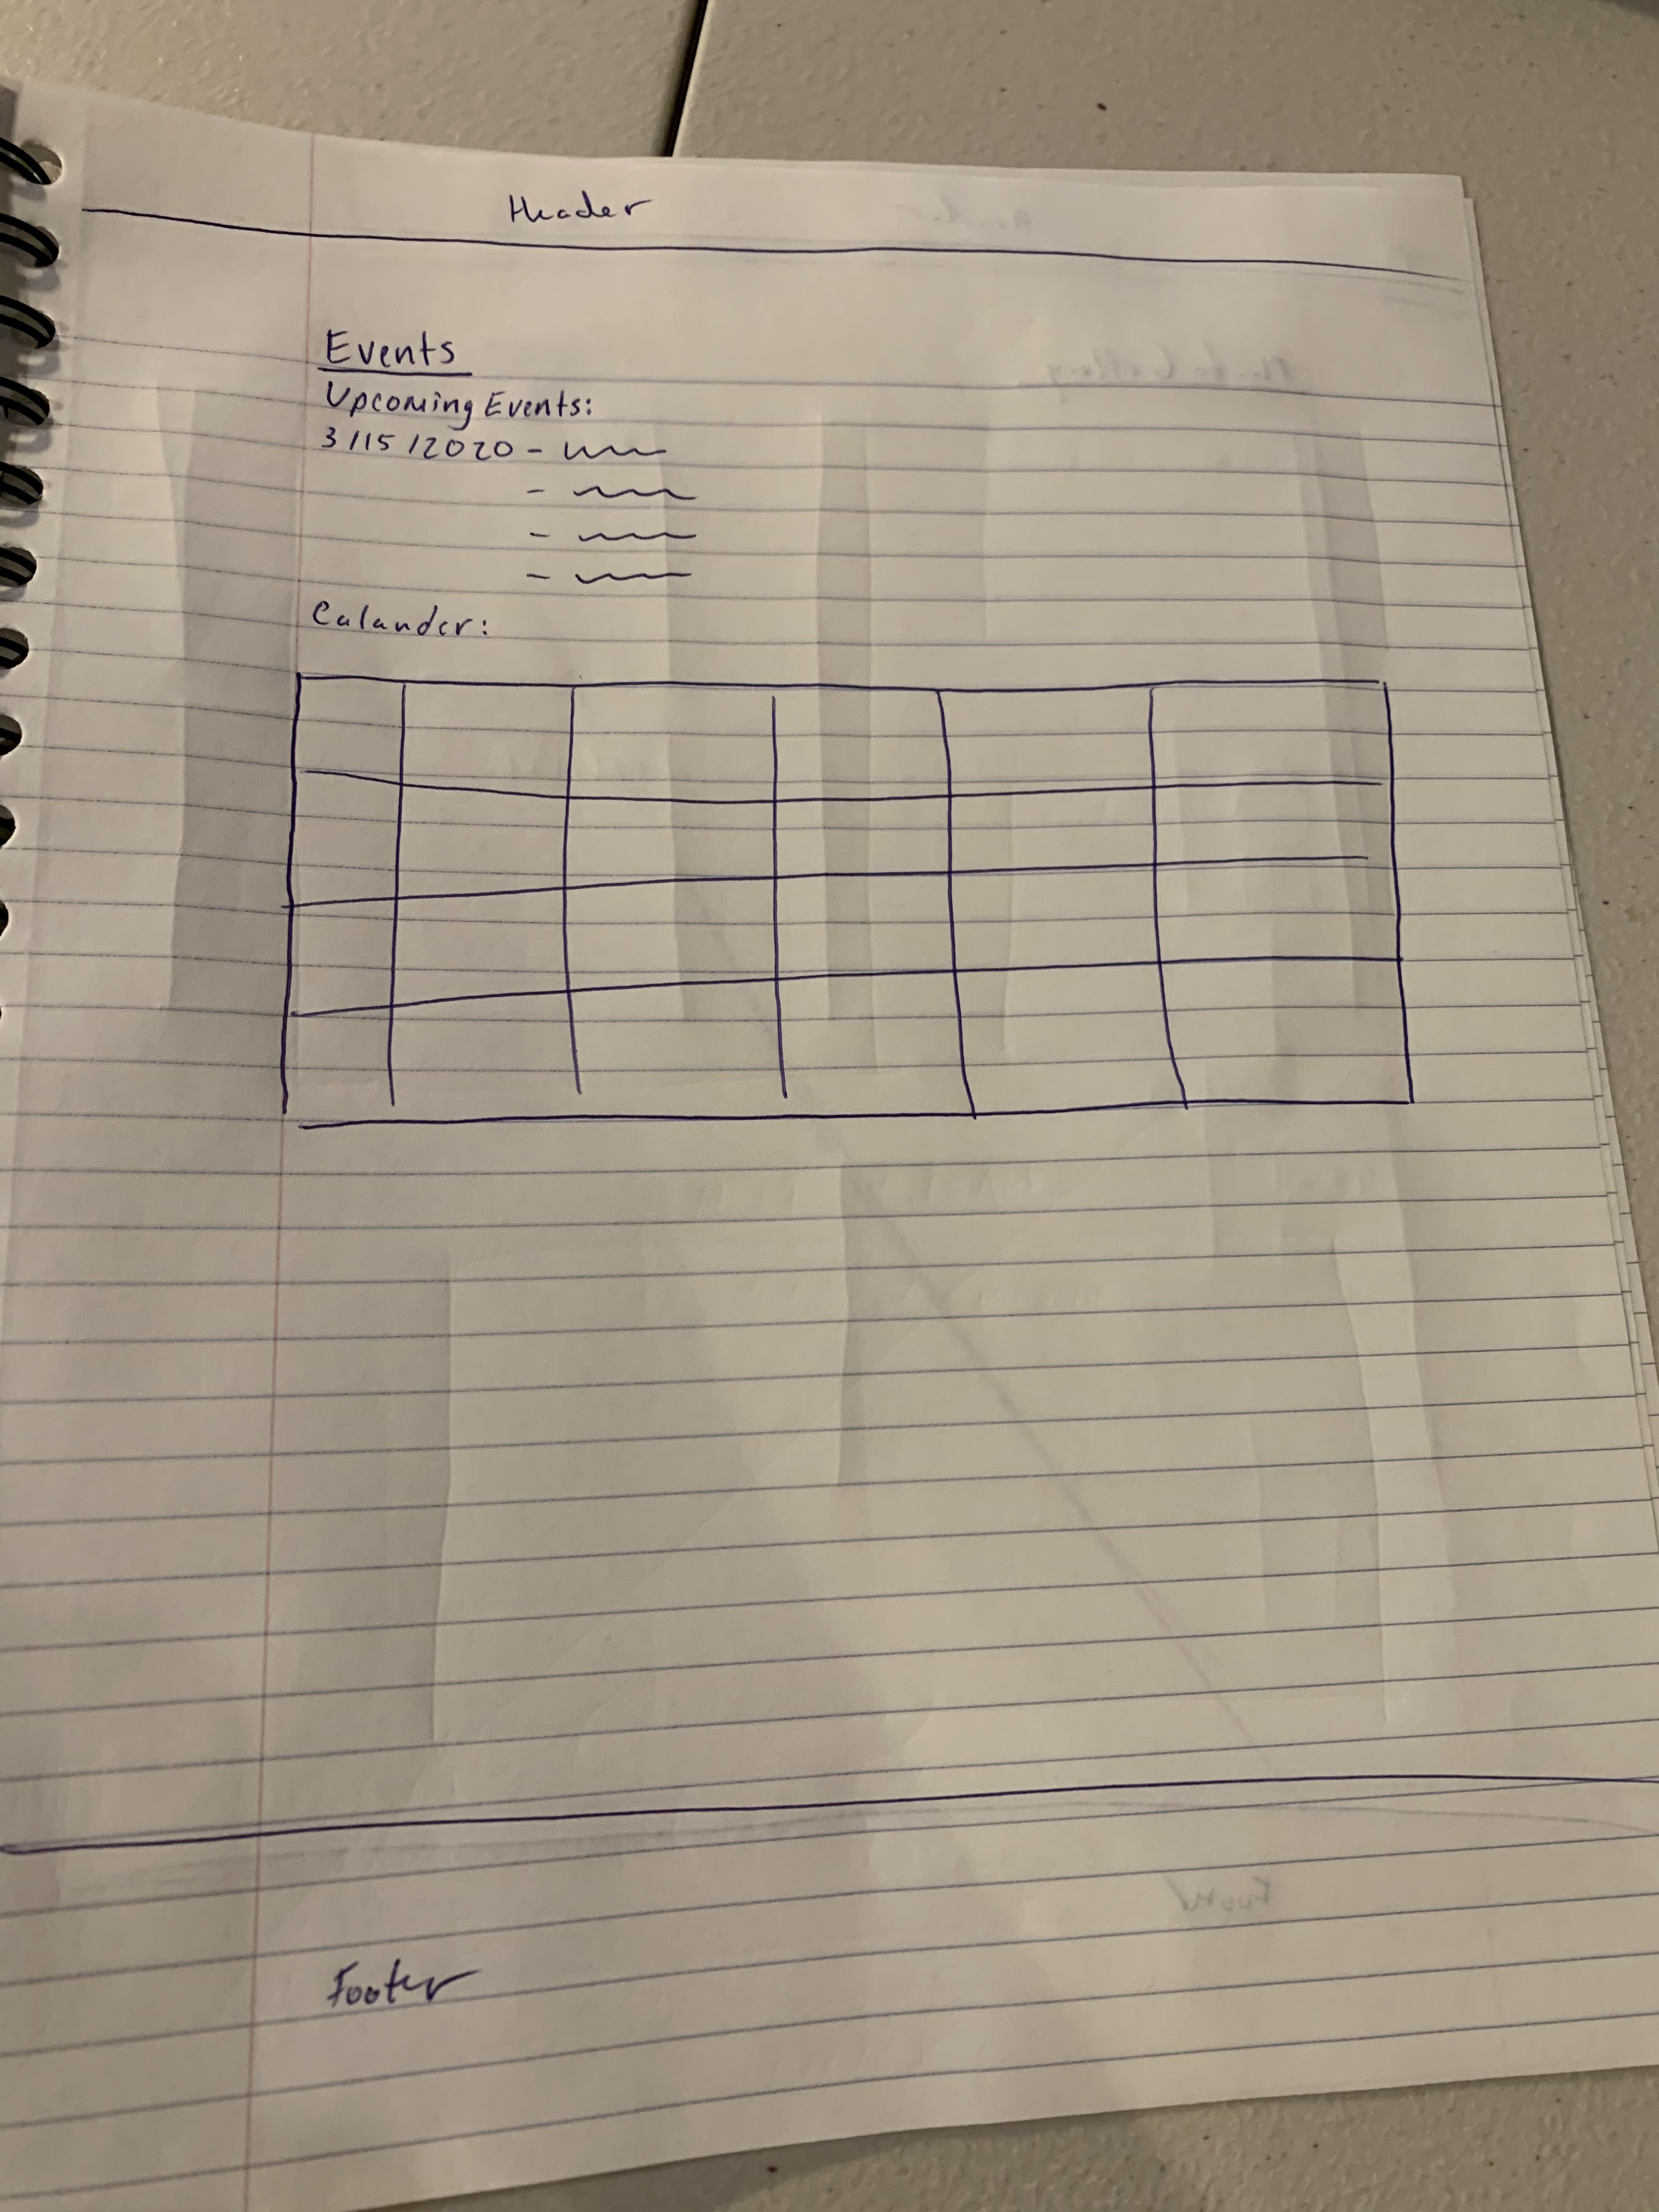 Header
Events
Upcoming Events:
3/15/2020 -
-
-
-
Calander:
Footer